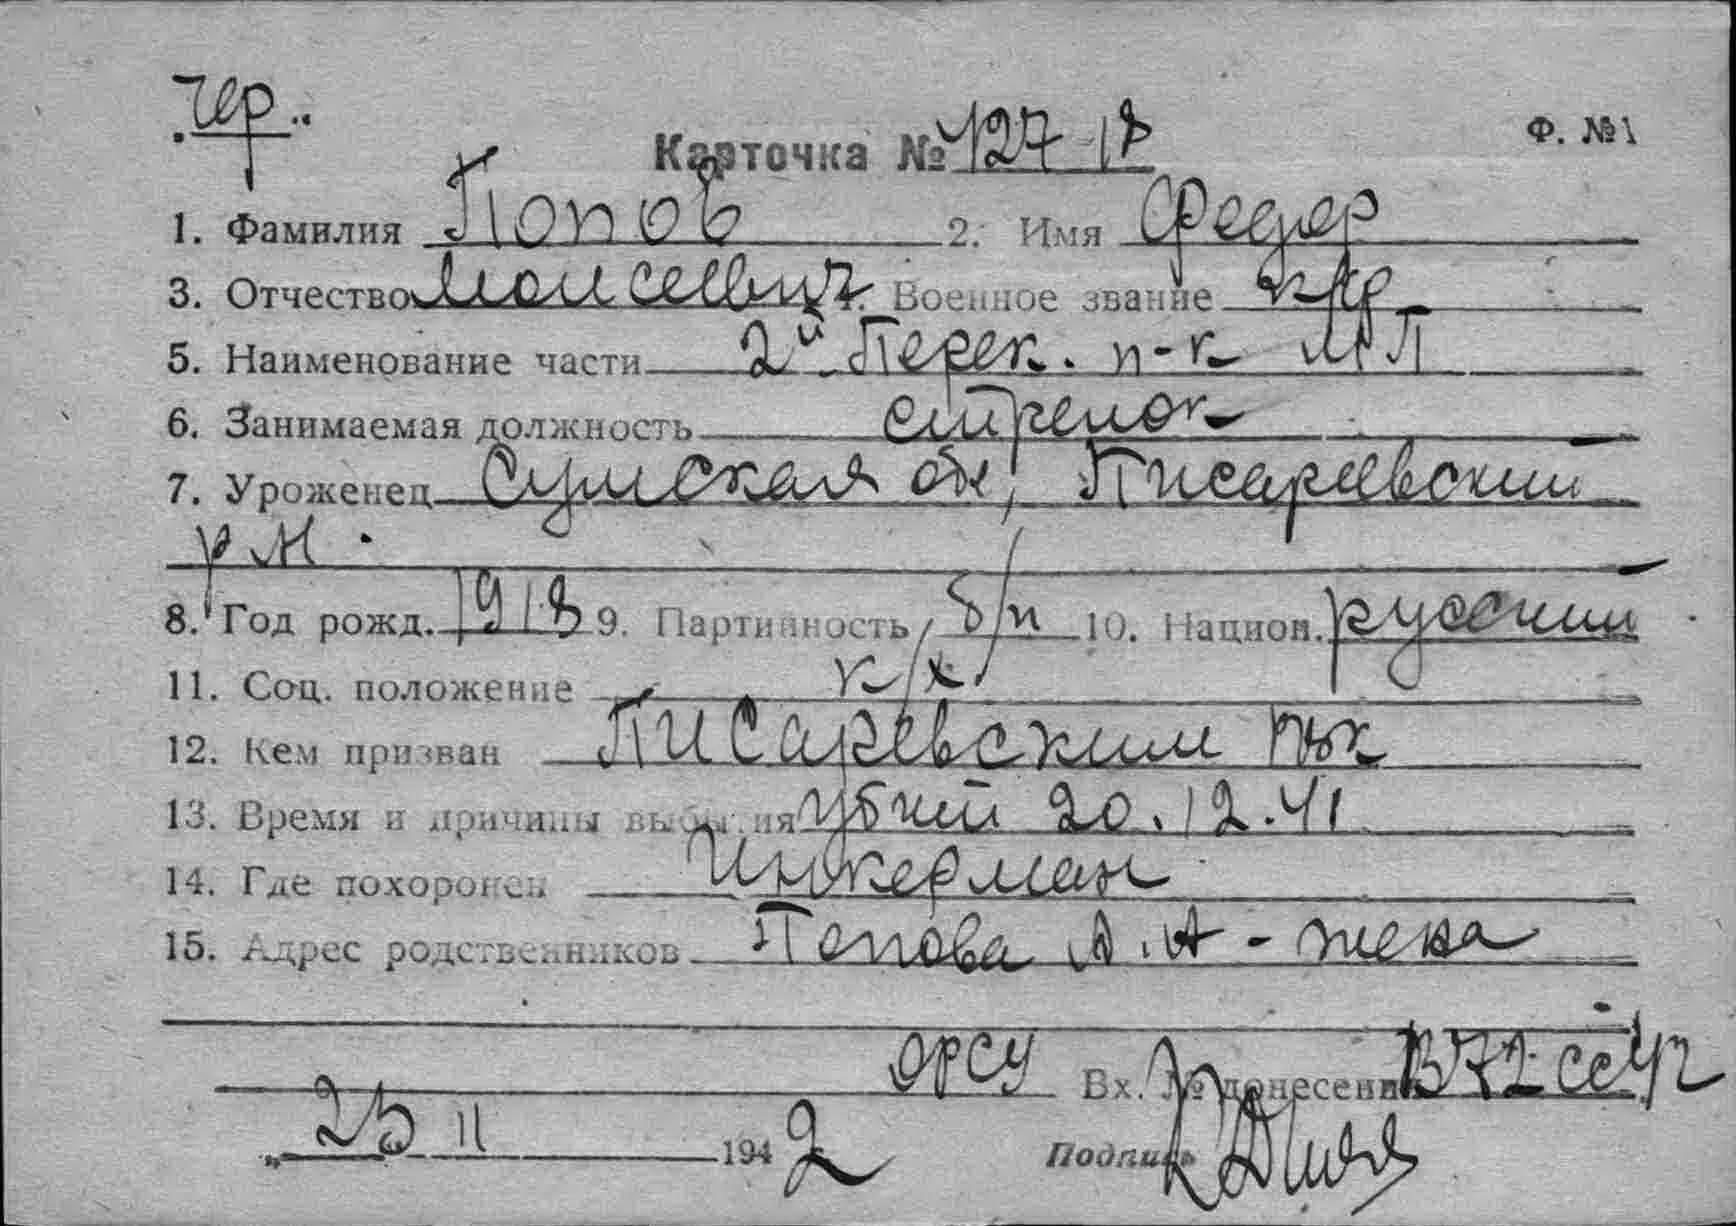 "Чер."
Ф. №1
Карточка № 12718
1. Фамилия Попов 2. Имя Федор
3. Отчество Моисеевич 4. Военное звание кр-ц
5. Наименование части 2й Перек. п-к МП
6. Занимаемая должность стрелок
7. Уроженец Сумская обл, Писаревский
р-н.
8. Год рожд. 1918 9. Партийность б/п 10. Национ. русский
11. Соц. положение к/х
12. Кем призван Писаревским рвк
13. Время и причины выбытия убит 20.12.41
14. Где похоронен Инкерман
15. Адрес родственников Попова А.А - жена
орсу Вх. № донесения 1372сс 42
„25 11 1942 Подпись